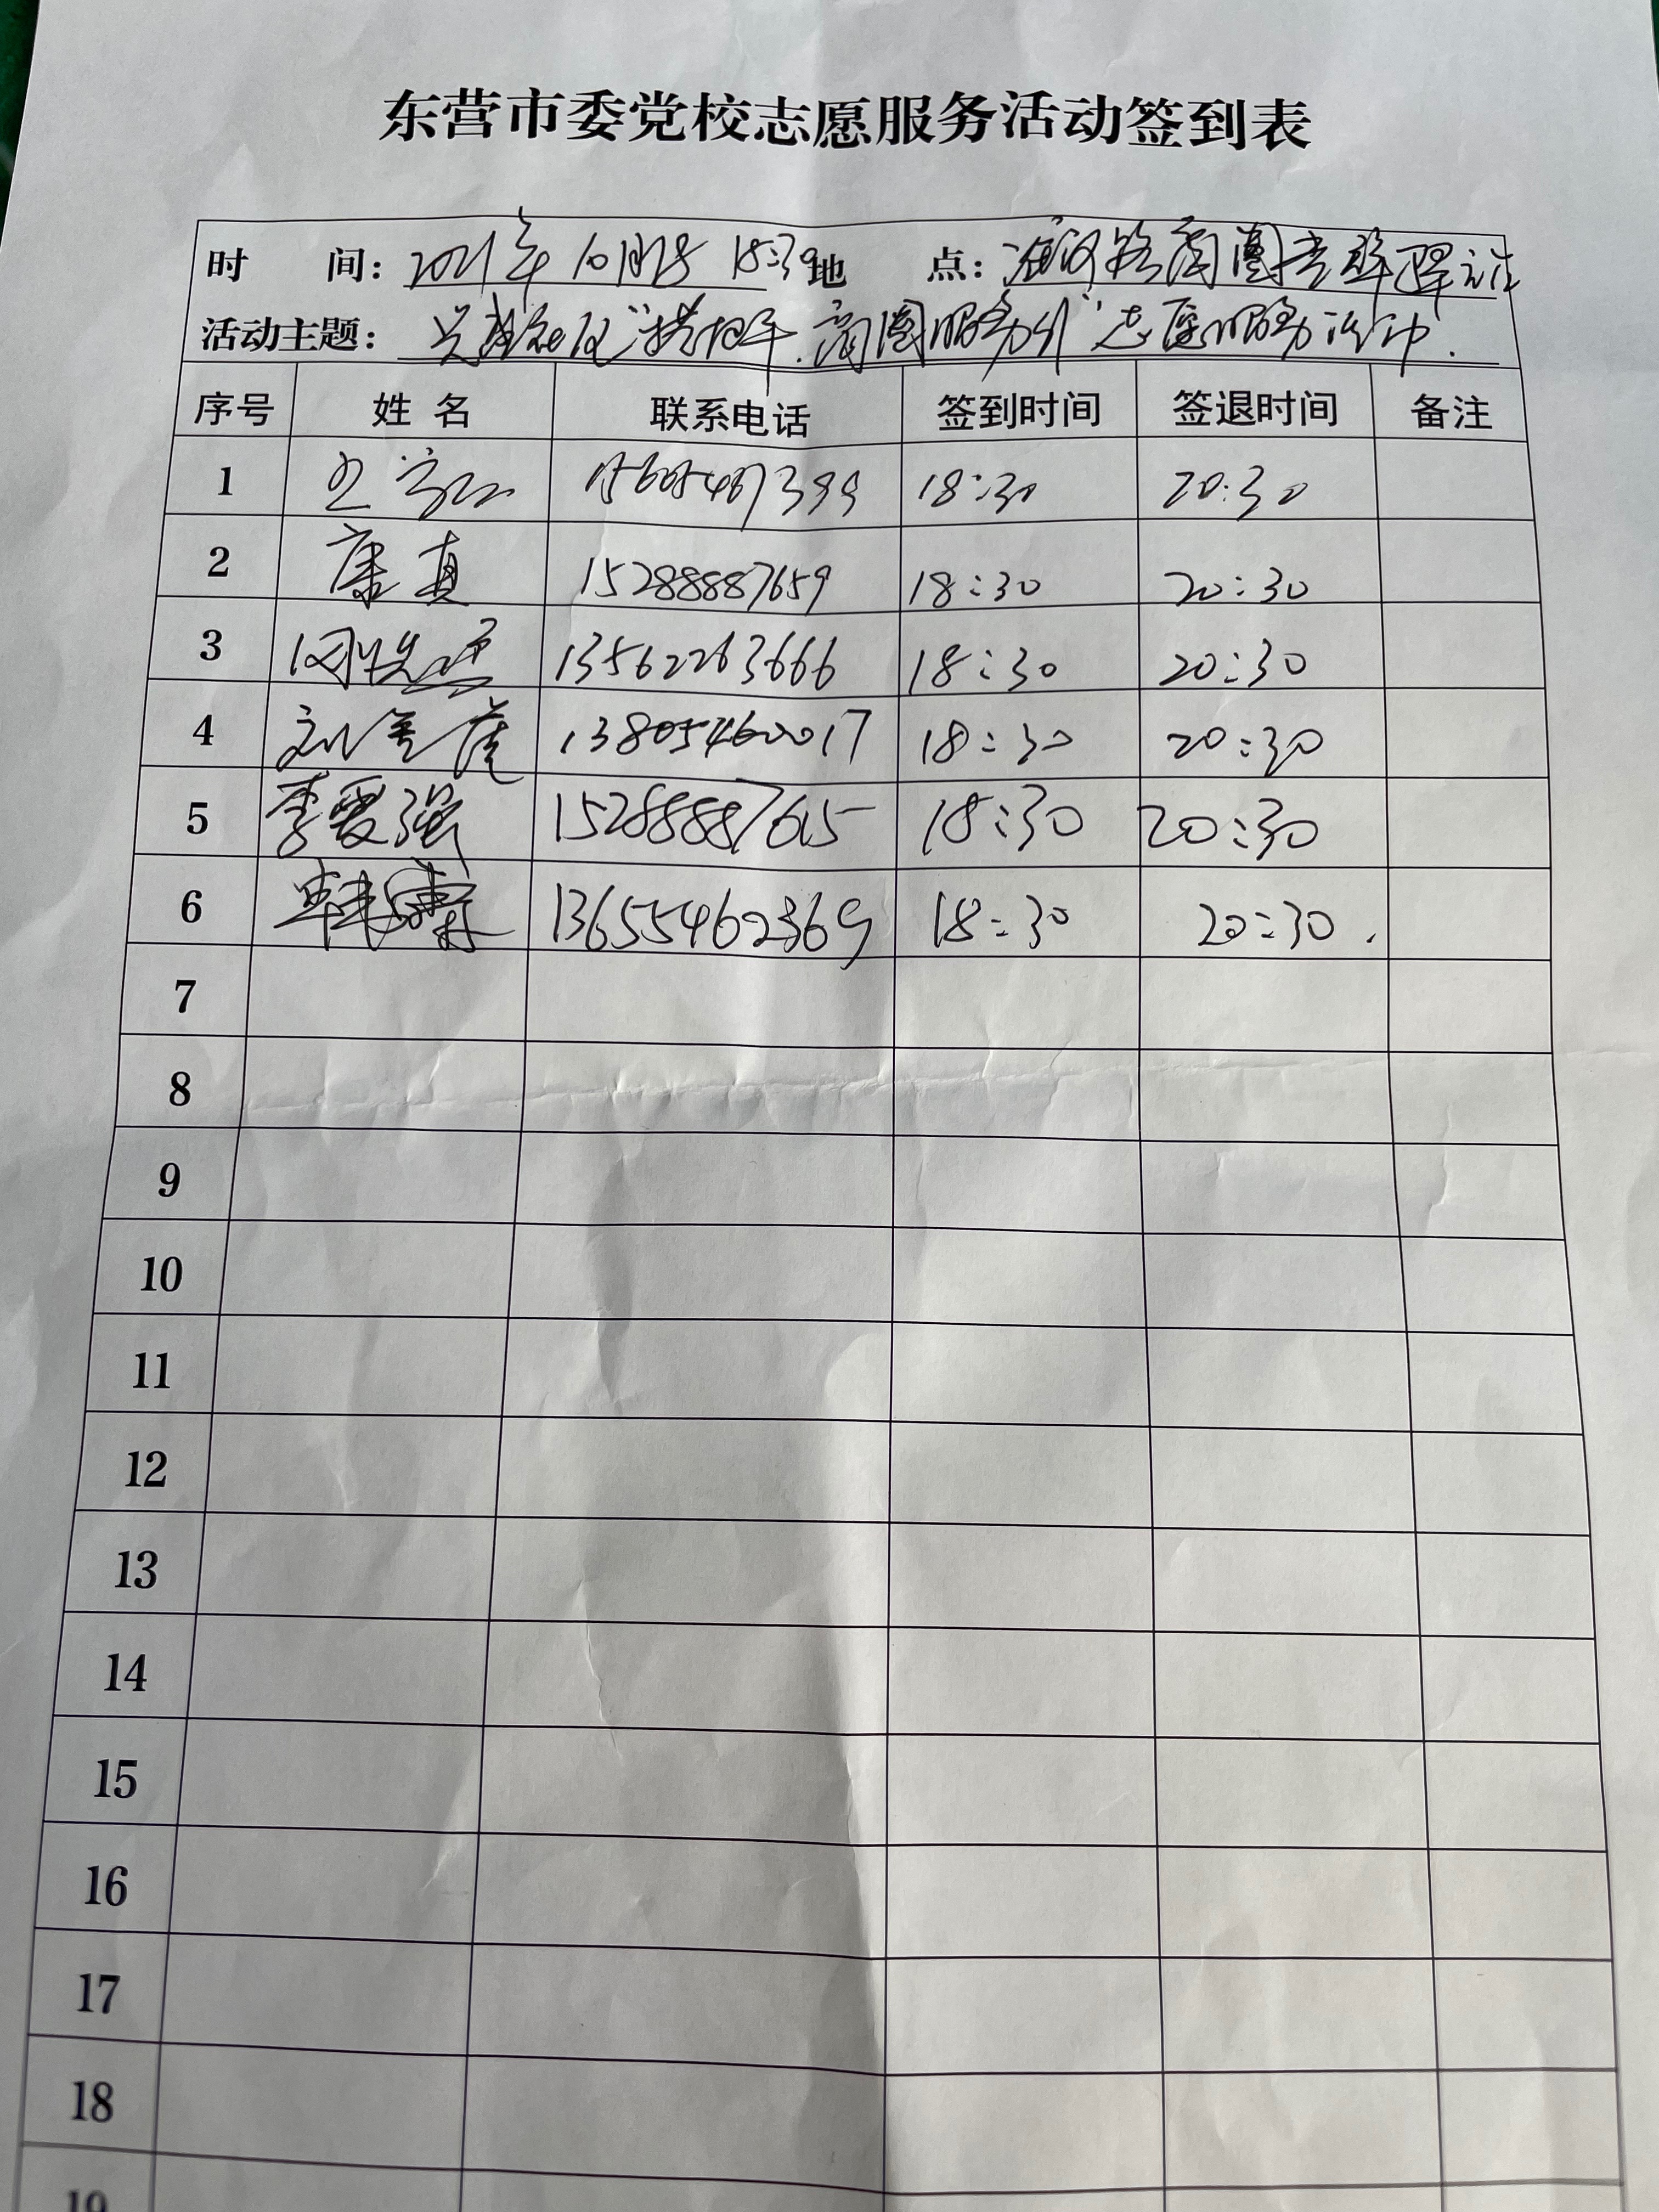 东营市委党校志愿服务活动签到表
时 间：2021年10月 18:30 地 点：商圈
活动主题： 商圈服务 志愿服务活动.
序号 姓名 联系电话 签到时间 签退时间 备注
1 399 18:30 20:30
2 康真 15288887659 18:30 20:30
3 13562263666 18:30 20:30
4 刘 13805460017 18:30 20:30
5 李爱强 15288887615 18:30 20:30
6 韩 13655462369 18:30 20:30.
7
8
9
10
11
12
13
14
15
16
17
18
19